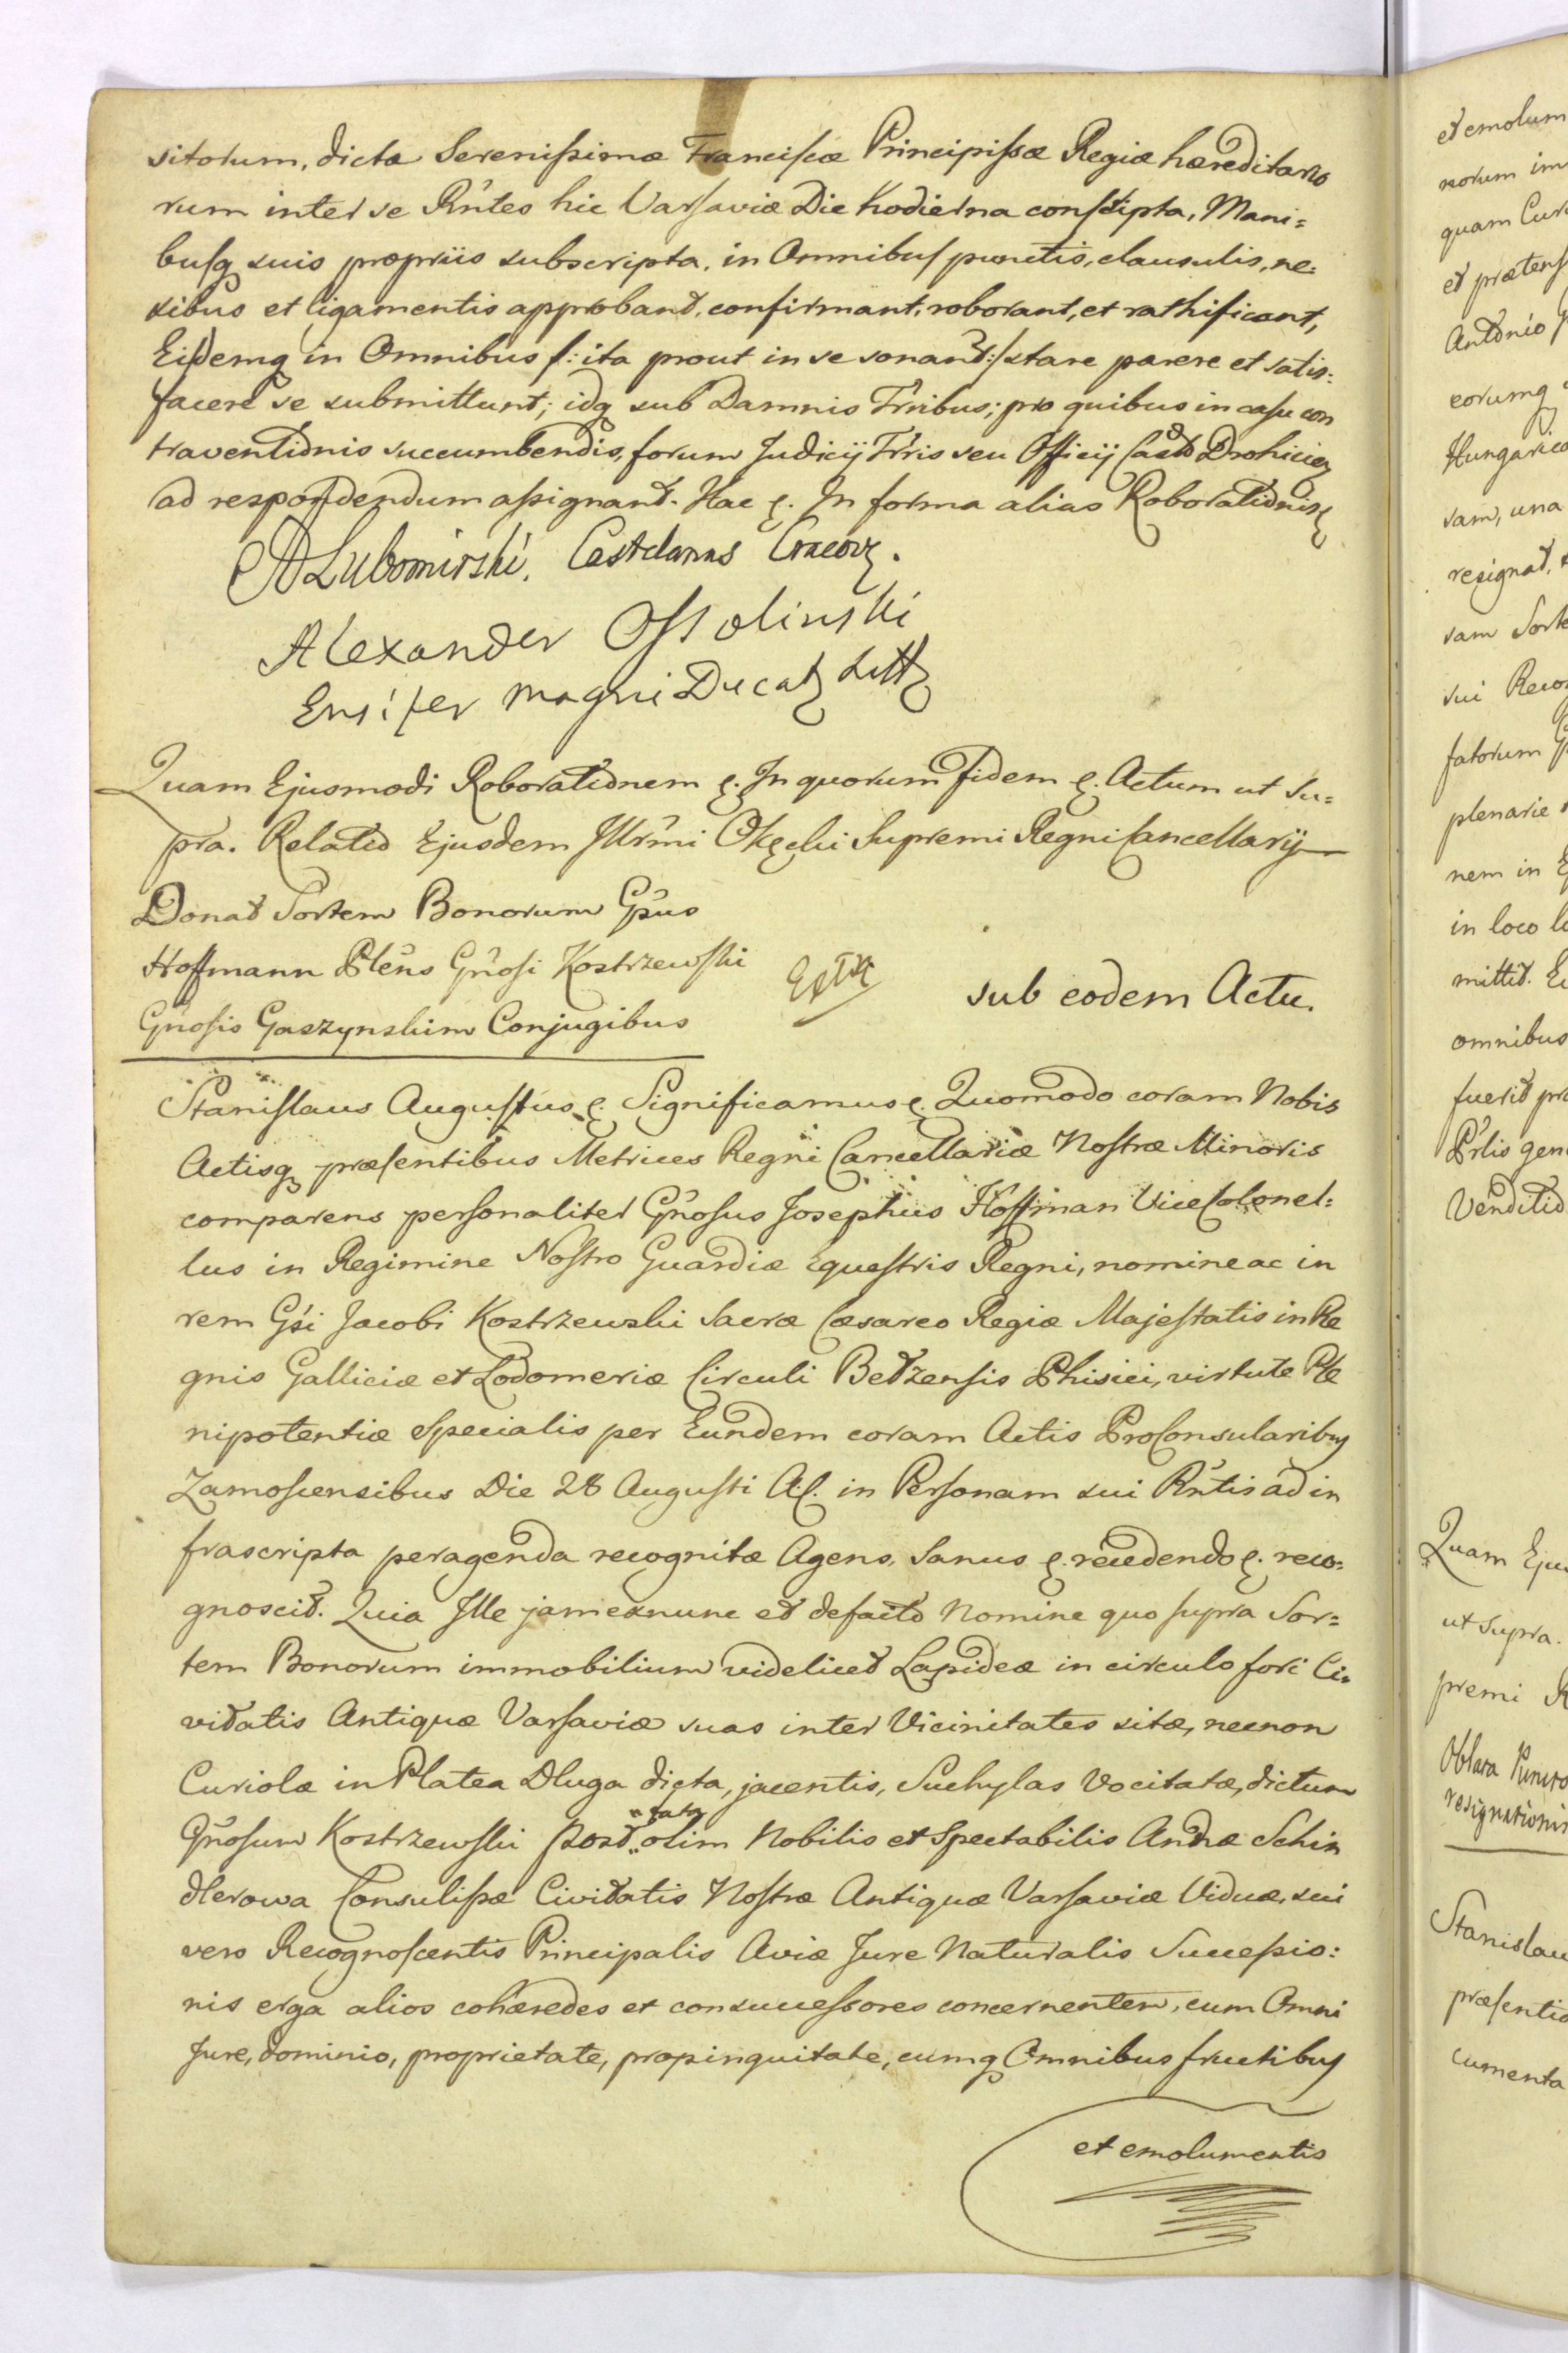 sitorum, dictæ Serenissimæ Franciscæ Principissæ Regiæ hæreditario
rum inter se Rñtes hic Varsaviæ Die hodierna conscripta, Mani=
busq suis propriis subscripta, in Omnibus punctis, clausulis, ne:
xibus et ligamentis approbant, confirmant, roborant, et rathificant,
Eisdemq in Omnibus /: ita prout in se sonant :/ stare parere et satis:
facere se submittunt; idq sub Damnis Trribus; pro quibus in casu con
traventionis succumbendis, forum Judicij Trris seu Officij Castr Drohicien
ad respondendum assignant. Hac ę. In forma alias Roborationis ę
A Lubomirski, Castelanus Cracov.
Alexander Ossolinski
Ensifer magni Ducat Litt
Quam Ejusmodi Roborationem ę. In quorum Fidem ę. Actum ut Su=
pra. Relatio Ejusdem Illrmi Okęcki Supremi Regni Cancellarij
Donat Sortem Bonorum Gñsus
Hoffmann Pleñs Gñosi Kostrzewski
Gñosis Gaszynskim Conjugibus
Extr
sub eodem Actu.
Stanislaus Augustus ę. Significamus ę. Quomodo coram Nobis
Actisq præsentibus Metrices Regni Cancellariæ Nostræ Minoris
comparens personaliter Gñosus Josephus Hoffman ViceColonel:
lus in Regimine Nostro Guardiæ Equestris Regni, nomine ac in
rem Gsi Jacobi Kostrzewski Sacræ Cæsareo Regiæ Majestatis in Re
gnis Galliciæ et Lodomeriæ Circuli Betzensis Phisici, virtute Ple
nipotentiæ Specialis per Eundem coram Actis ProConsularibus
Zamoscensibus Die 28 Augusti A.C. in Personam sui Rñtis ad in
frascripta peragenda recognitæ Agens, Sanus ę. recedendo ę. reco=
gnoscit. Quia Ille jamexnunc et defacto Nomine quo supra Sor=
tem Bonorum immobilium videlicet Lapideæ in circulo fori Ci=
vitatis Antiquæ Varsaviæ suas inter Vicinitates sitæ, necnon
Curiolæ in Platea Dluga dicta, jacentis, Suchylas Vocitatæ, dictum
Gñosum Kostrzewski post fata olim Nobilis et Spectabilis Andræ Schin
dlerowa Consulissæ Civitatis Nostræ Antiquæ Varsaviæ Viduæ, sui
vero Recognoscentis Principalis Aviæ Jure Naturalis Successio:
nis erga alios cohæredes et consuccessores concernentem, cum Omni
Jure, dominio, proprietate, propinquitate, cumq Omnibus fructibus
et emolumentis
et emolum
norum im
quam Cur
et prætens
Antonio
eorumq
Hungarico
sam, una
resignat,
sam Sorte
sui Reco
fatorum G
plenarie
nem in E
in loco
mittit. E
omnibus
fuerit pro
Pr̃lis gen
Venditio
Quam Eju
ut Supra.
premi R
Oblata
resignationis
Stanislau
præsentib
cumenta